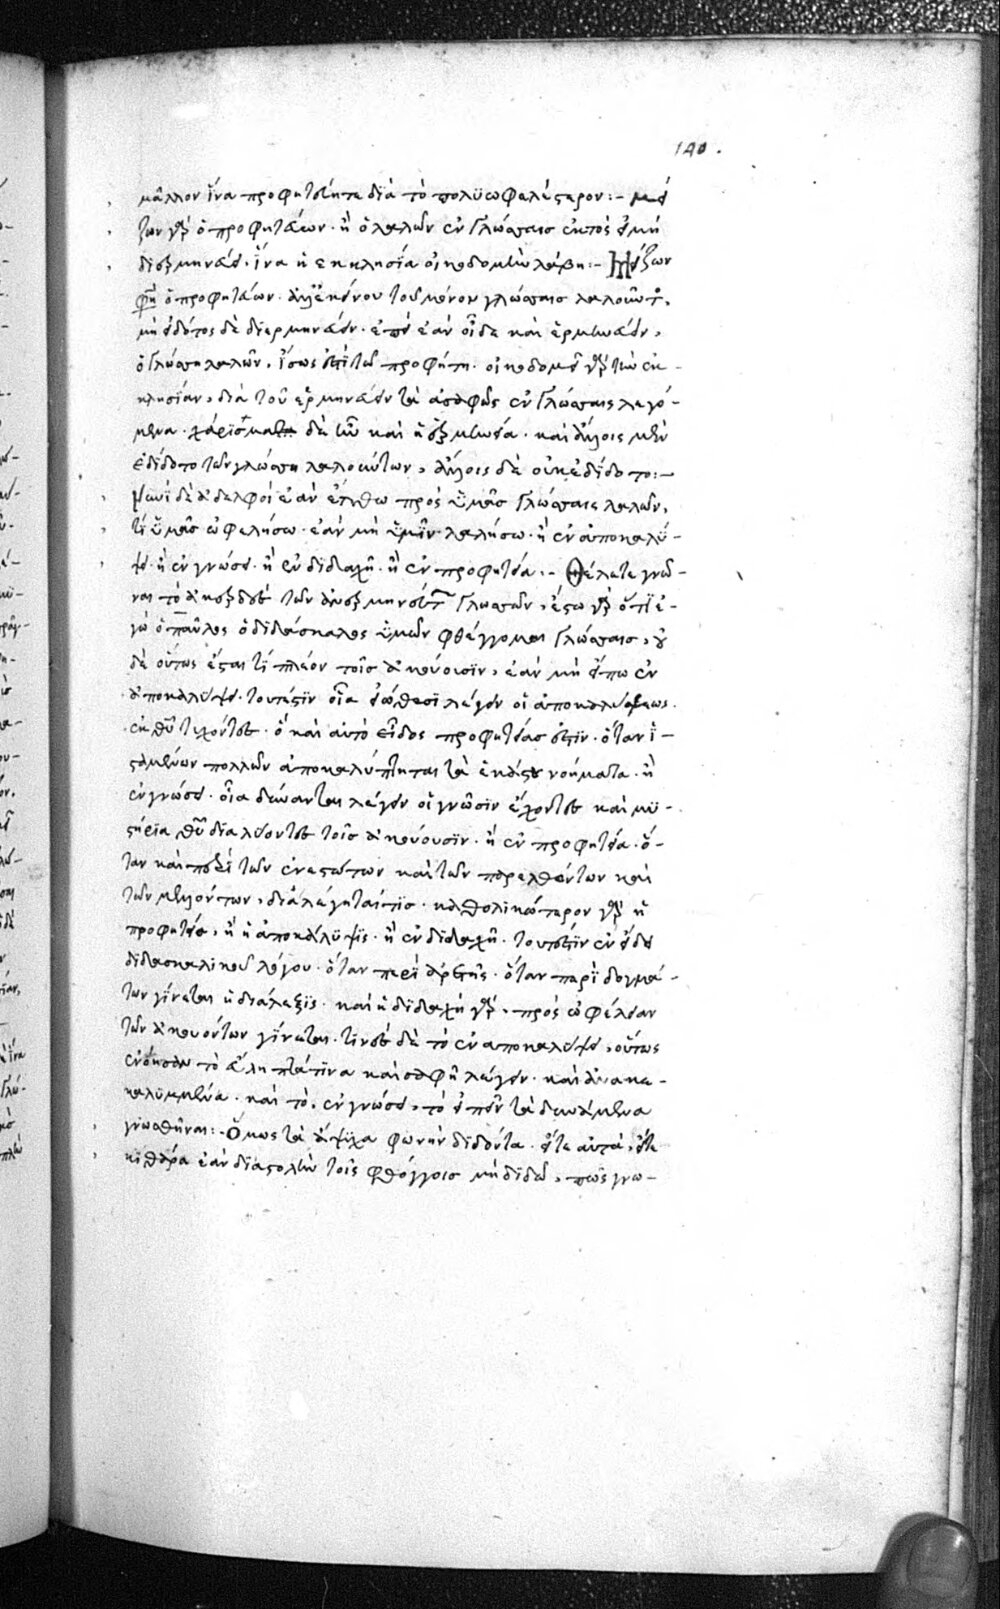 140.
μᾶλλον ἵνα προφητεύητε διὰ τὸ πολϋωφελέστερον:- μεί
ζων γὰρ ὁ προφητεύων· ἢ ὁ λαλῶν ἐν γλώσσαις ἐκτὸς εἰ μὴ
διερμηνεύει· ἵνα ἡ εκκλησία οἰκοδομὴν λάβη:- Μείζων
φησὶ ὁ προφητεύων· ἀλλ' ἐκείνου τοῦ μόνον γλώσσαις λαλοῦντος,
μὴ εἰδότος δὲ διερμηνεύειν· ἐπεὶ ἐὰν οἶδε καὶ ἑρμηνεύειν,
ὁ γλώσση λαλῶν, ἴσως ἐστὶ τῶ προφήτη· οἰκοδομεῖ γὰρ τὴν ἐκ-
κλησίαν, διὰ τοῦ ἑρμηνεύειν τὰ ἀσαφῶς ἐν γλώσσαις λεγό-
μενα· χάρισμα δὲ ἦν καὶ ἡ ἑρμηνεία· καὶ ἄλλοις μὲν
ἐδίδοτο τῶν γλώσση λαλούντων, ἄλλοις δὲ οὐκ ἐδίδοτο:-
Νυνὶ δὲ ἀδελφοὶ ἐὰν ἔλθω πρὸς ὑμᾶς γλώσσαις λαλῶν,
τί ὑμᾶς ὠφελήσω· ἐὰν μὴ ὑμῖν λαλήσω· ἢ ἐν ἀποκαλύ-
ψει· ἢ ἐν γνώσει· ἢ ἐν διδαχῆ· ἢ ἐν προφητεία:- Θέλετε γνῶ-
ναι τὸ ἀκερδὲς τῶν ἀνερμηνεύτων γλωσσῶν, ἔστω γὰρ ὅτι ἐ-
γὼ ὁ παῦλος ὁ διδάσκαλος ὑμῶν φθέγγομαι γλώσσαις, οὐ
δὲ οὕτως ἔσται τί πλέον τοῖς ἀκούουσιν, ἐὰν μὴ εἴπω ἐν
ἀποκαλύψει· τουτέστιν οἷα εἰώθασι λέγειν οἱ ἀποκαλύψεως
ἐκ θεοῦ τυχόντες· ὃ καὶ αὐτὸ εἶδος προφητείας ἐστίν· ὅταν ἱ-
σταμένων πολλῶν ἀποκαλύπτηται τὰ ἑκάστου νοήματα· ἢ
ἐν γνώσει· οἷα δύνανται λέγειν οἱ γνῶσιν ἔχοντες καὶ μυ-
στήρια θεοῦ διαλύοντες τοῖς ἀκούουσιν· ἢ ἐν προφητεία· ὅ-
ταν καὶ περὶ τῶν ἐνεστώτων καὶ τῶν παρελθόντων καὶ
τῶν μελλόντων, διαλέγηταί τις· καθολικώτερον γὰρ ἡ
προφητεία, ἢ ἡ ἀποκάλυψις· ἢ ἐν διδαχῆ· τουτέστιν ἐν εἴδει
διδασκαλικοῦ λόγου· ὅταν περὶ ἀρετῆς· ὅταν περὶ δογμά-
των γίνεται ἡ διάλεξις· καὶ ἡ διδαχὴ γὰρ, πρὸς ὠφέλειαν
τῶν ἀκουόντων γίνεται· τινὲς δὲ τὸ ἐν αποκαλύψει, οὕτως
ἐνόησαν τὸ εὔληπτά τινα καὶ σαφῆ λέγειν· καὶ ἀνακε-
καλυμμένα· καὶ τὸ, ἐν γνώσει, τὸ εἰπεῖν τὰ δυνάμενα
γνωσθῆναι:- Ὅμως τὰ ἄψυχα φωνὴν διδόντα· εἴτε αὐλὸς, εἴτε
κιθάρα ἐὰν διαστολὴν τοῖς φθόγγοις μὴ διδῶ, πῶς γνω-